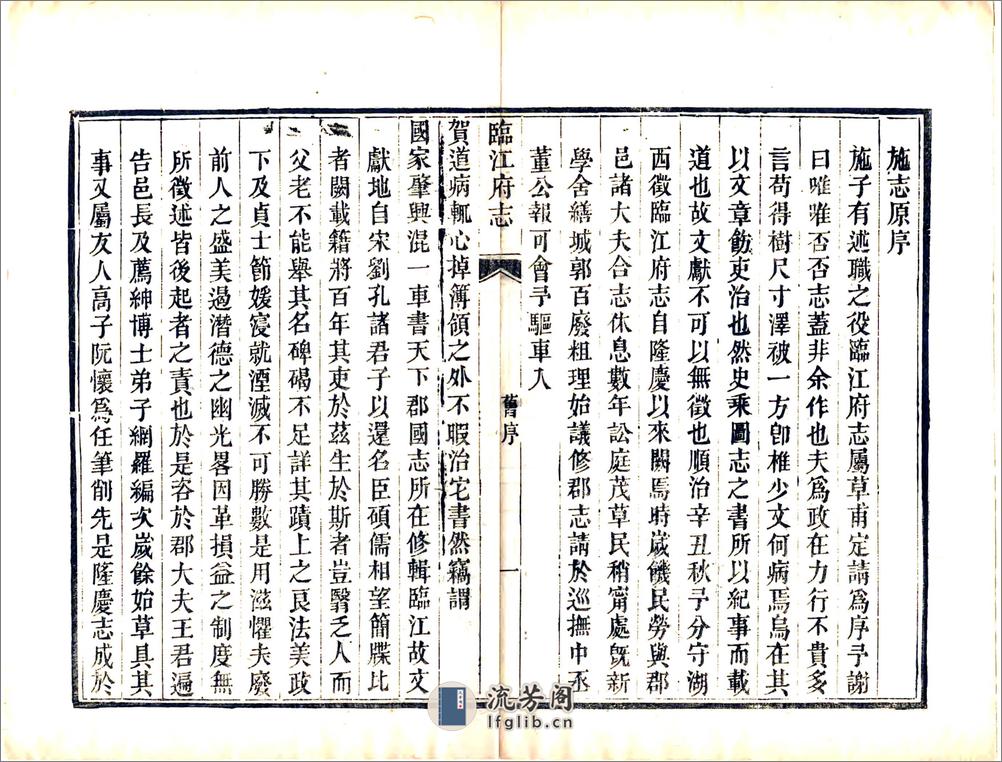 施志原序
施子有述職之役臨江府志屬草甫定請爲序予謝
曰唯唯否否志蓋非余作也夫爲政在力行不貴多
言苟得樹尺寸澤被一方卽椎少文何病焉烏在其
以文章飭吏治也然史乘圖志之書所以紀事而載
道也故文獻不可以無徵也順治辛丑秋予分守湖
西徵臨江府志自隆慶以來闕焉時嵗饑民勞與郡
邑諸大夫合志休息數年訟庭茂草民稍甯處旣新
學舍繕城郭百廢粗理始議修郡志請於巡撫中丞
董公報可會予驅車入
臨江府志
舊序
一
賀道病輒心掉簿領之外不暇治宅書然竊謂
國家肇興混一車書天下郡國志所在修輯臨江故文
獻地自宋劉孔諸君子以還名臣碩儒相望簡牒比
者闕載籍將百年其吏於茲生於斯者豈翳乏人而
父老不能舉其名碑碣不足詳其蹟上之良法美政
下及貞士節媛寖就湮滅不可勝數是用滋懼夫廢
前人之盛美遏潛德之幽光畧因革損益之制度無
所徵述皆後起者之責也於是咨於郡大夫王君遍
告邑長及薦紳博士弟子網羅編次嵗餘始草具其
事又屬友人高子阮懷爲任筆削先是隆慶志成於
流芳阁
lfglib.cn